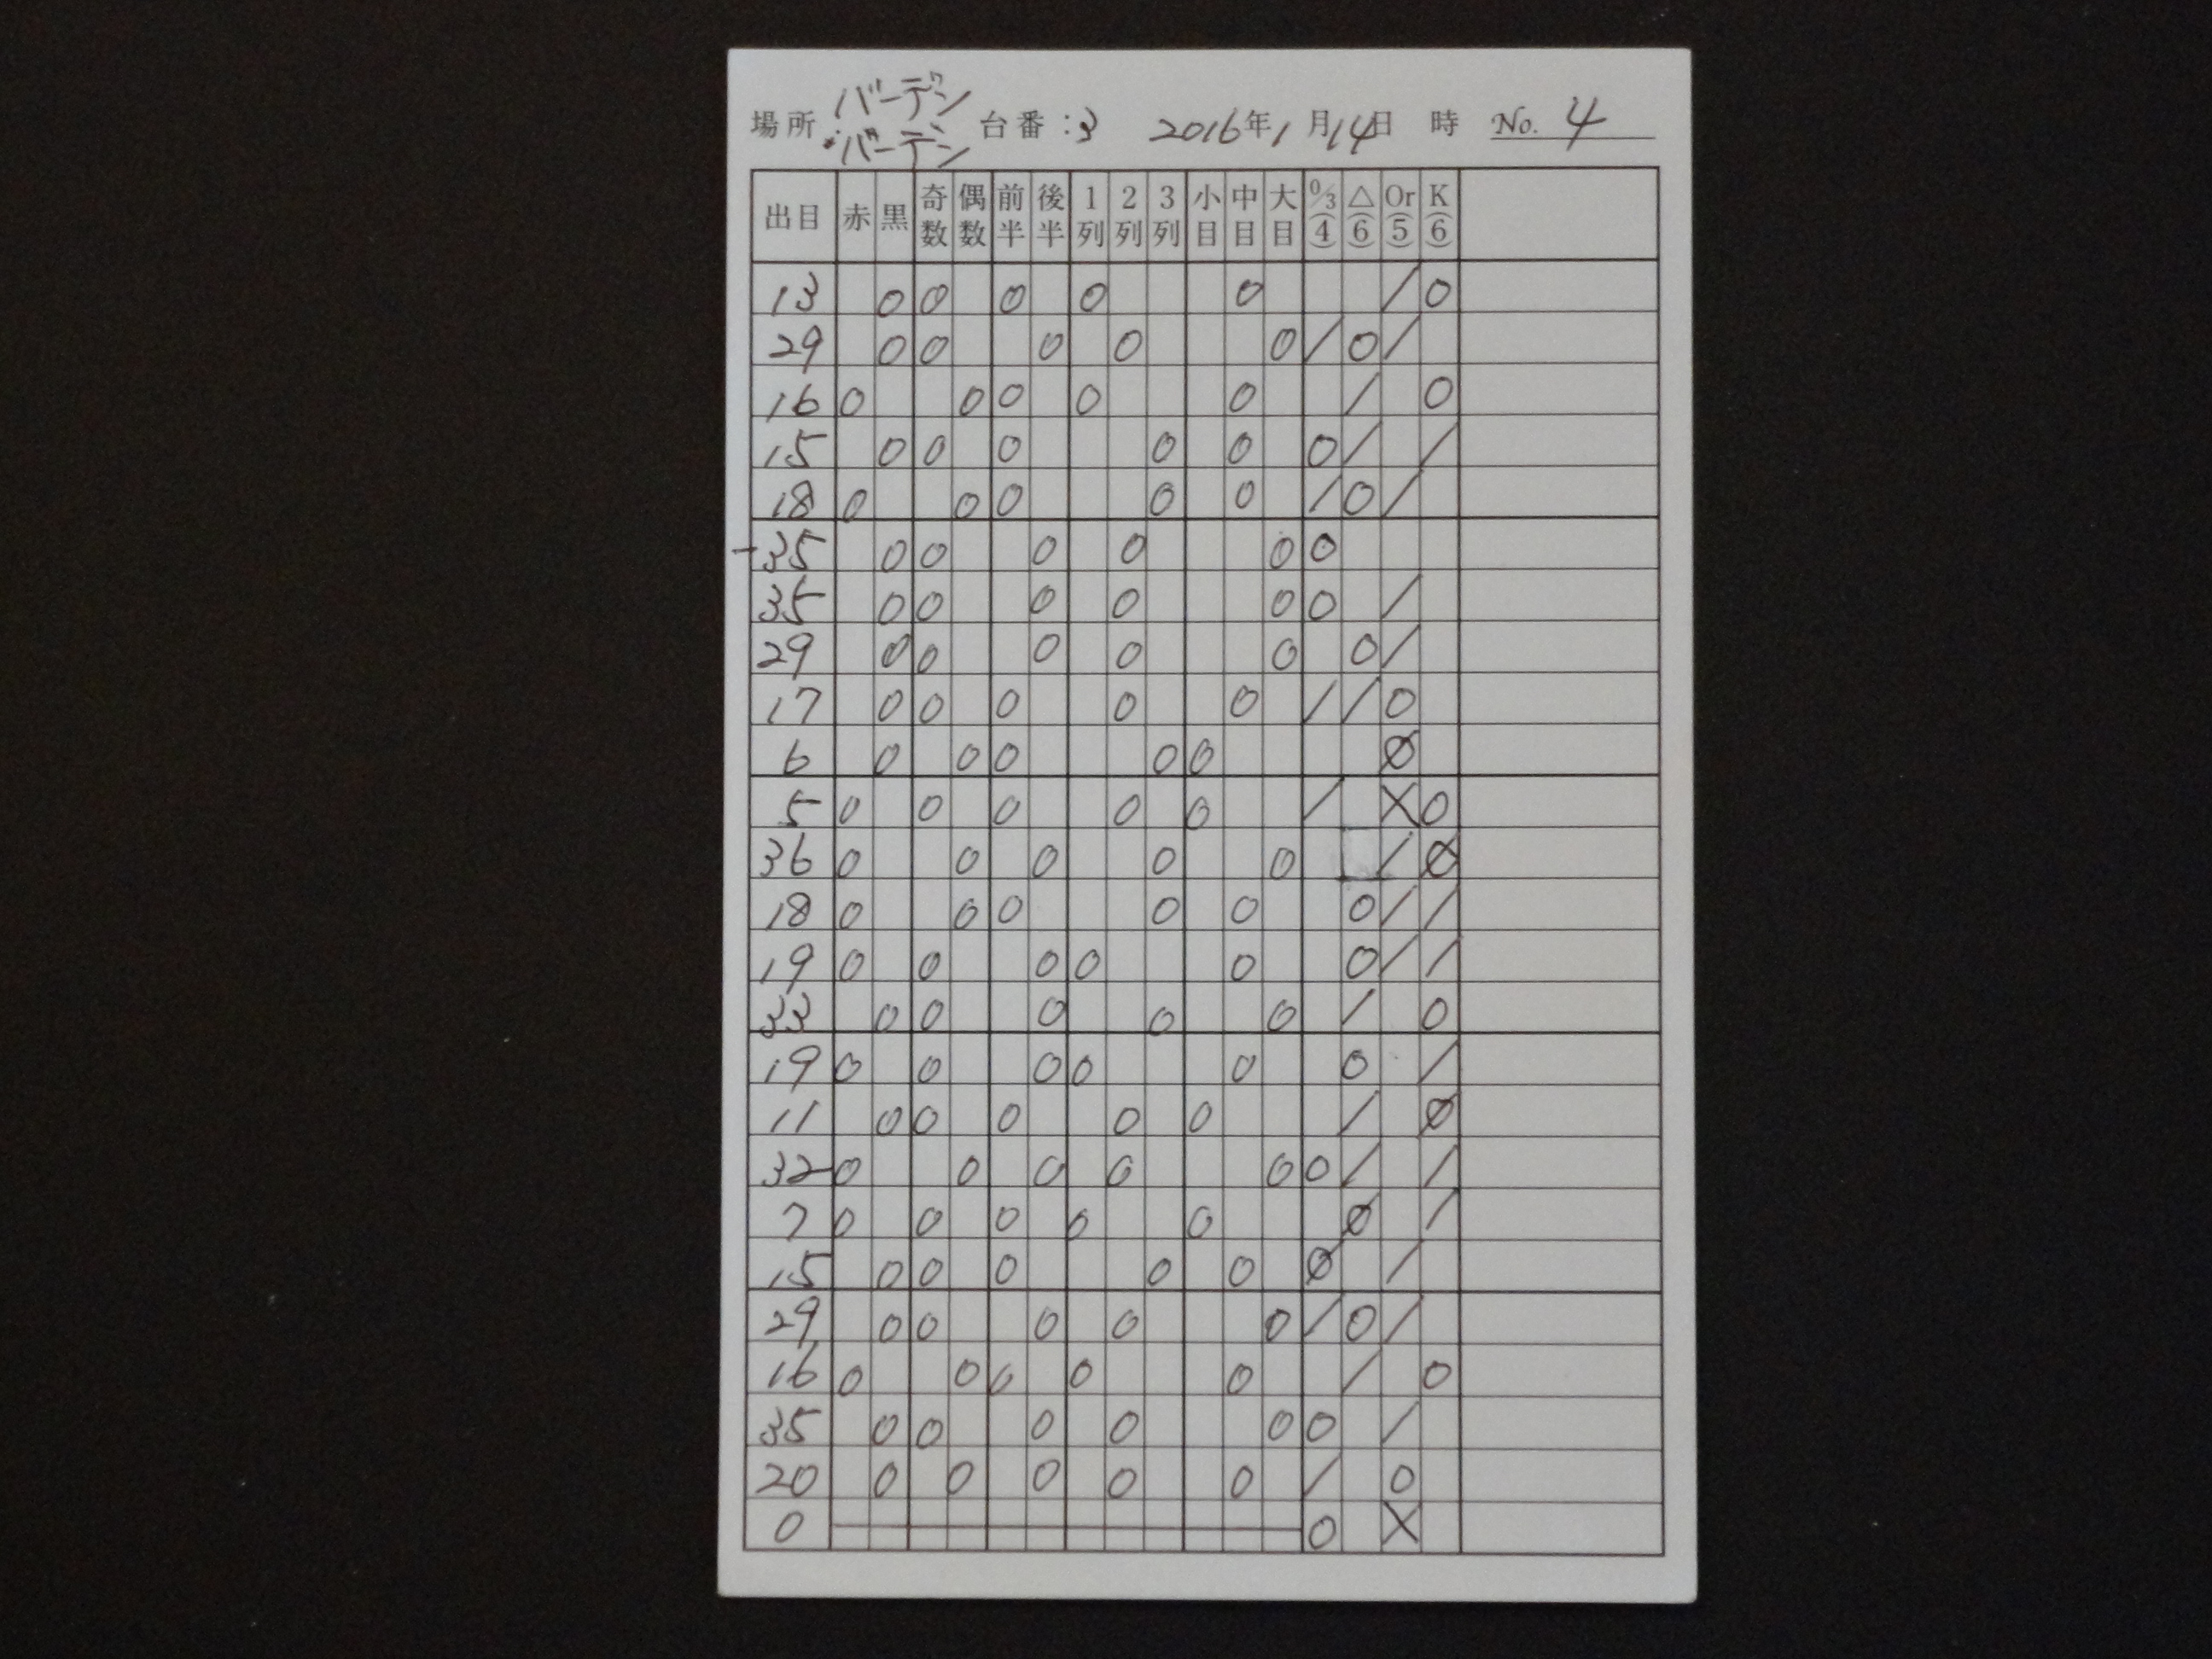 場所:バーデン・バーデン 台番:3 2016年1月14日 時 No. 4
出目 赤 黒 奇数 偶数 前半 後半 1列 2列 3列 小目 中目 大目 0/3(4) △(6) Or(5) K(6)
13 0 0 0 0 0 / 0
29 0 0 0 0 0 / 0 /
16 0 0 0 0 0 / 0
15 0 0 0 0 0 0 / /
18 0 0 0 0 0 / 0 /
-35 0 0 0 0 0 0
35 0 0 0 0 0 0 /
29 0 0 0 0 0 0 /
17 0 0 0 0 0 / / 0
6 0 0 0 0 0 Ø
5 0 0 0 0 0 / X 0
36 0 0 0 0 0 / Ø
18 0 0 0 0 0 0 / /
19 0 0 0 0 0 0 / /
33 0 0 0 0 0 / 0
19 0 0 0 0 0 0 /
11 0 0 0 0 0 / Ø
32 0 0 0 0 0 0 / /
7 0 0 0 0 0 Ø /
15 0 0 0 0 0 Ø /
29 0 0 0 0 0 / 0 /
16 0 0 0 0 0 / 0
35 0 0 0 0 0 0 /
20 0 0 0 0 0 / 0
0 0 X